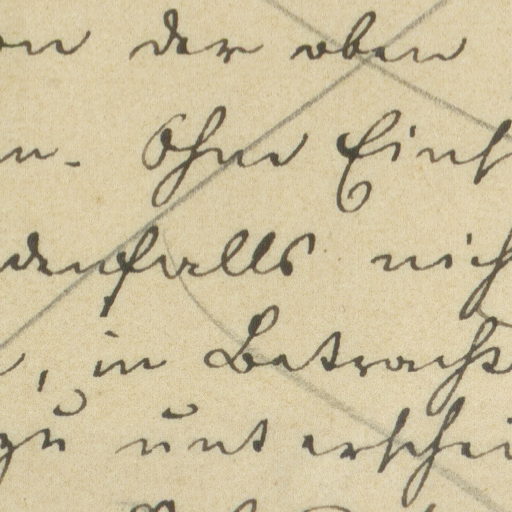 on der oben
n. Ohne Einf
denfalls nich
, in Betracht
zu unterschei